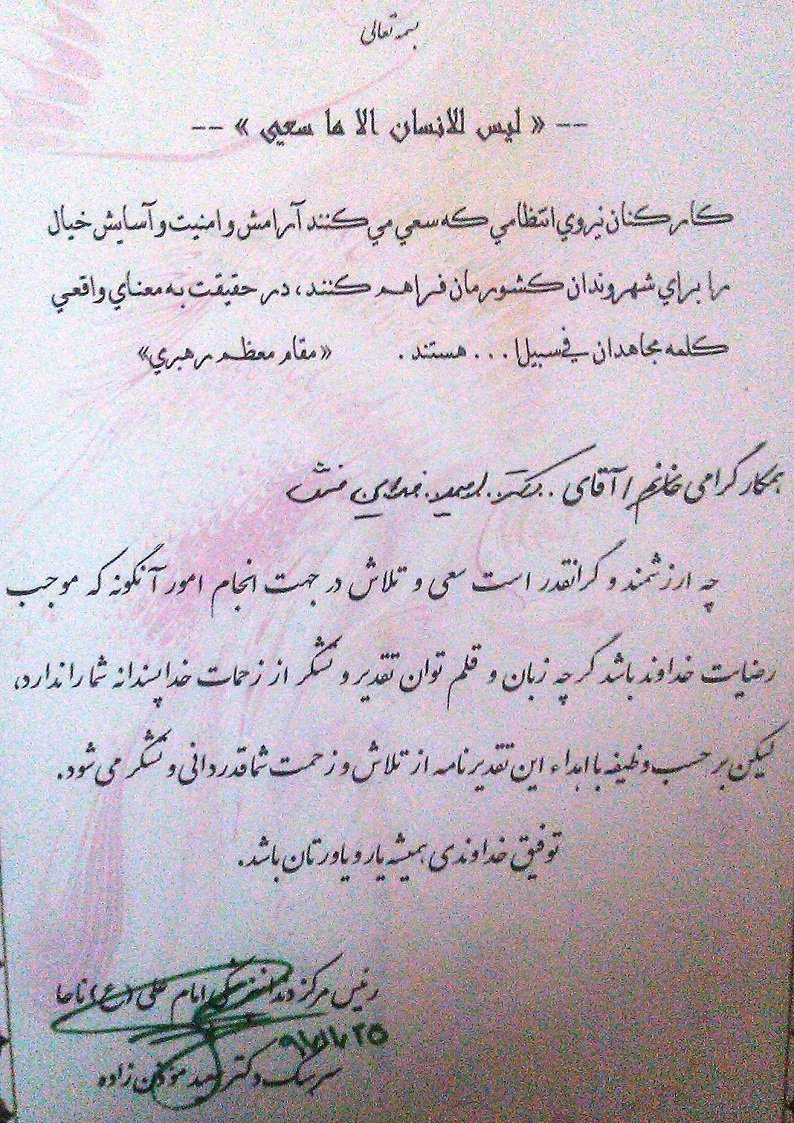 بسمه تعالی
-- « ليس للانسان الا ما سعي » --
كاركنان نيروي انتظامي كه سعي مي كنند آرامش و امنيت و آسايش خيال
را براي شهروندان كشورمان فراهم كنند ، در حقيقت به معناي واقعي
كلمه مجاهدان في سبيل ا . . . هستند . «مقام معظم رهبري»
همکار گرامی خانم / آقای . دکتر . امید . خدایی منش
چه ارزشمند و گرانقدر است سعی و تلاش در جهت انجام امور آنگونه که موجب
رضایت خداوند باشد گرچه زبان و قلم توان تقدیر و تشکر از زحمات خداپسندانه شما را ندارد،
لیکن بر حسب وظیفه با اهداء این تقدیرنامه از تلاش و زحمت شما قدردانی و تشکر می شود.
توفیق خداوندی همیشه یار و یاورتان باشد.
رئیس مرکز دندانپزشکی امام علی (ع) ناجا
سرهنگ دکتر موذن زاده